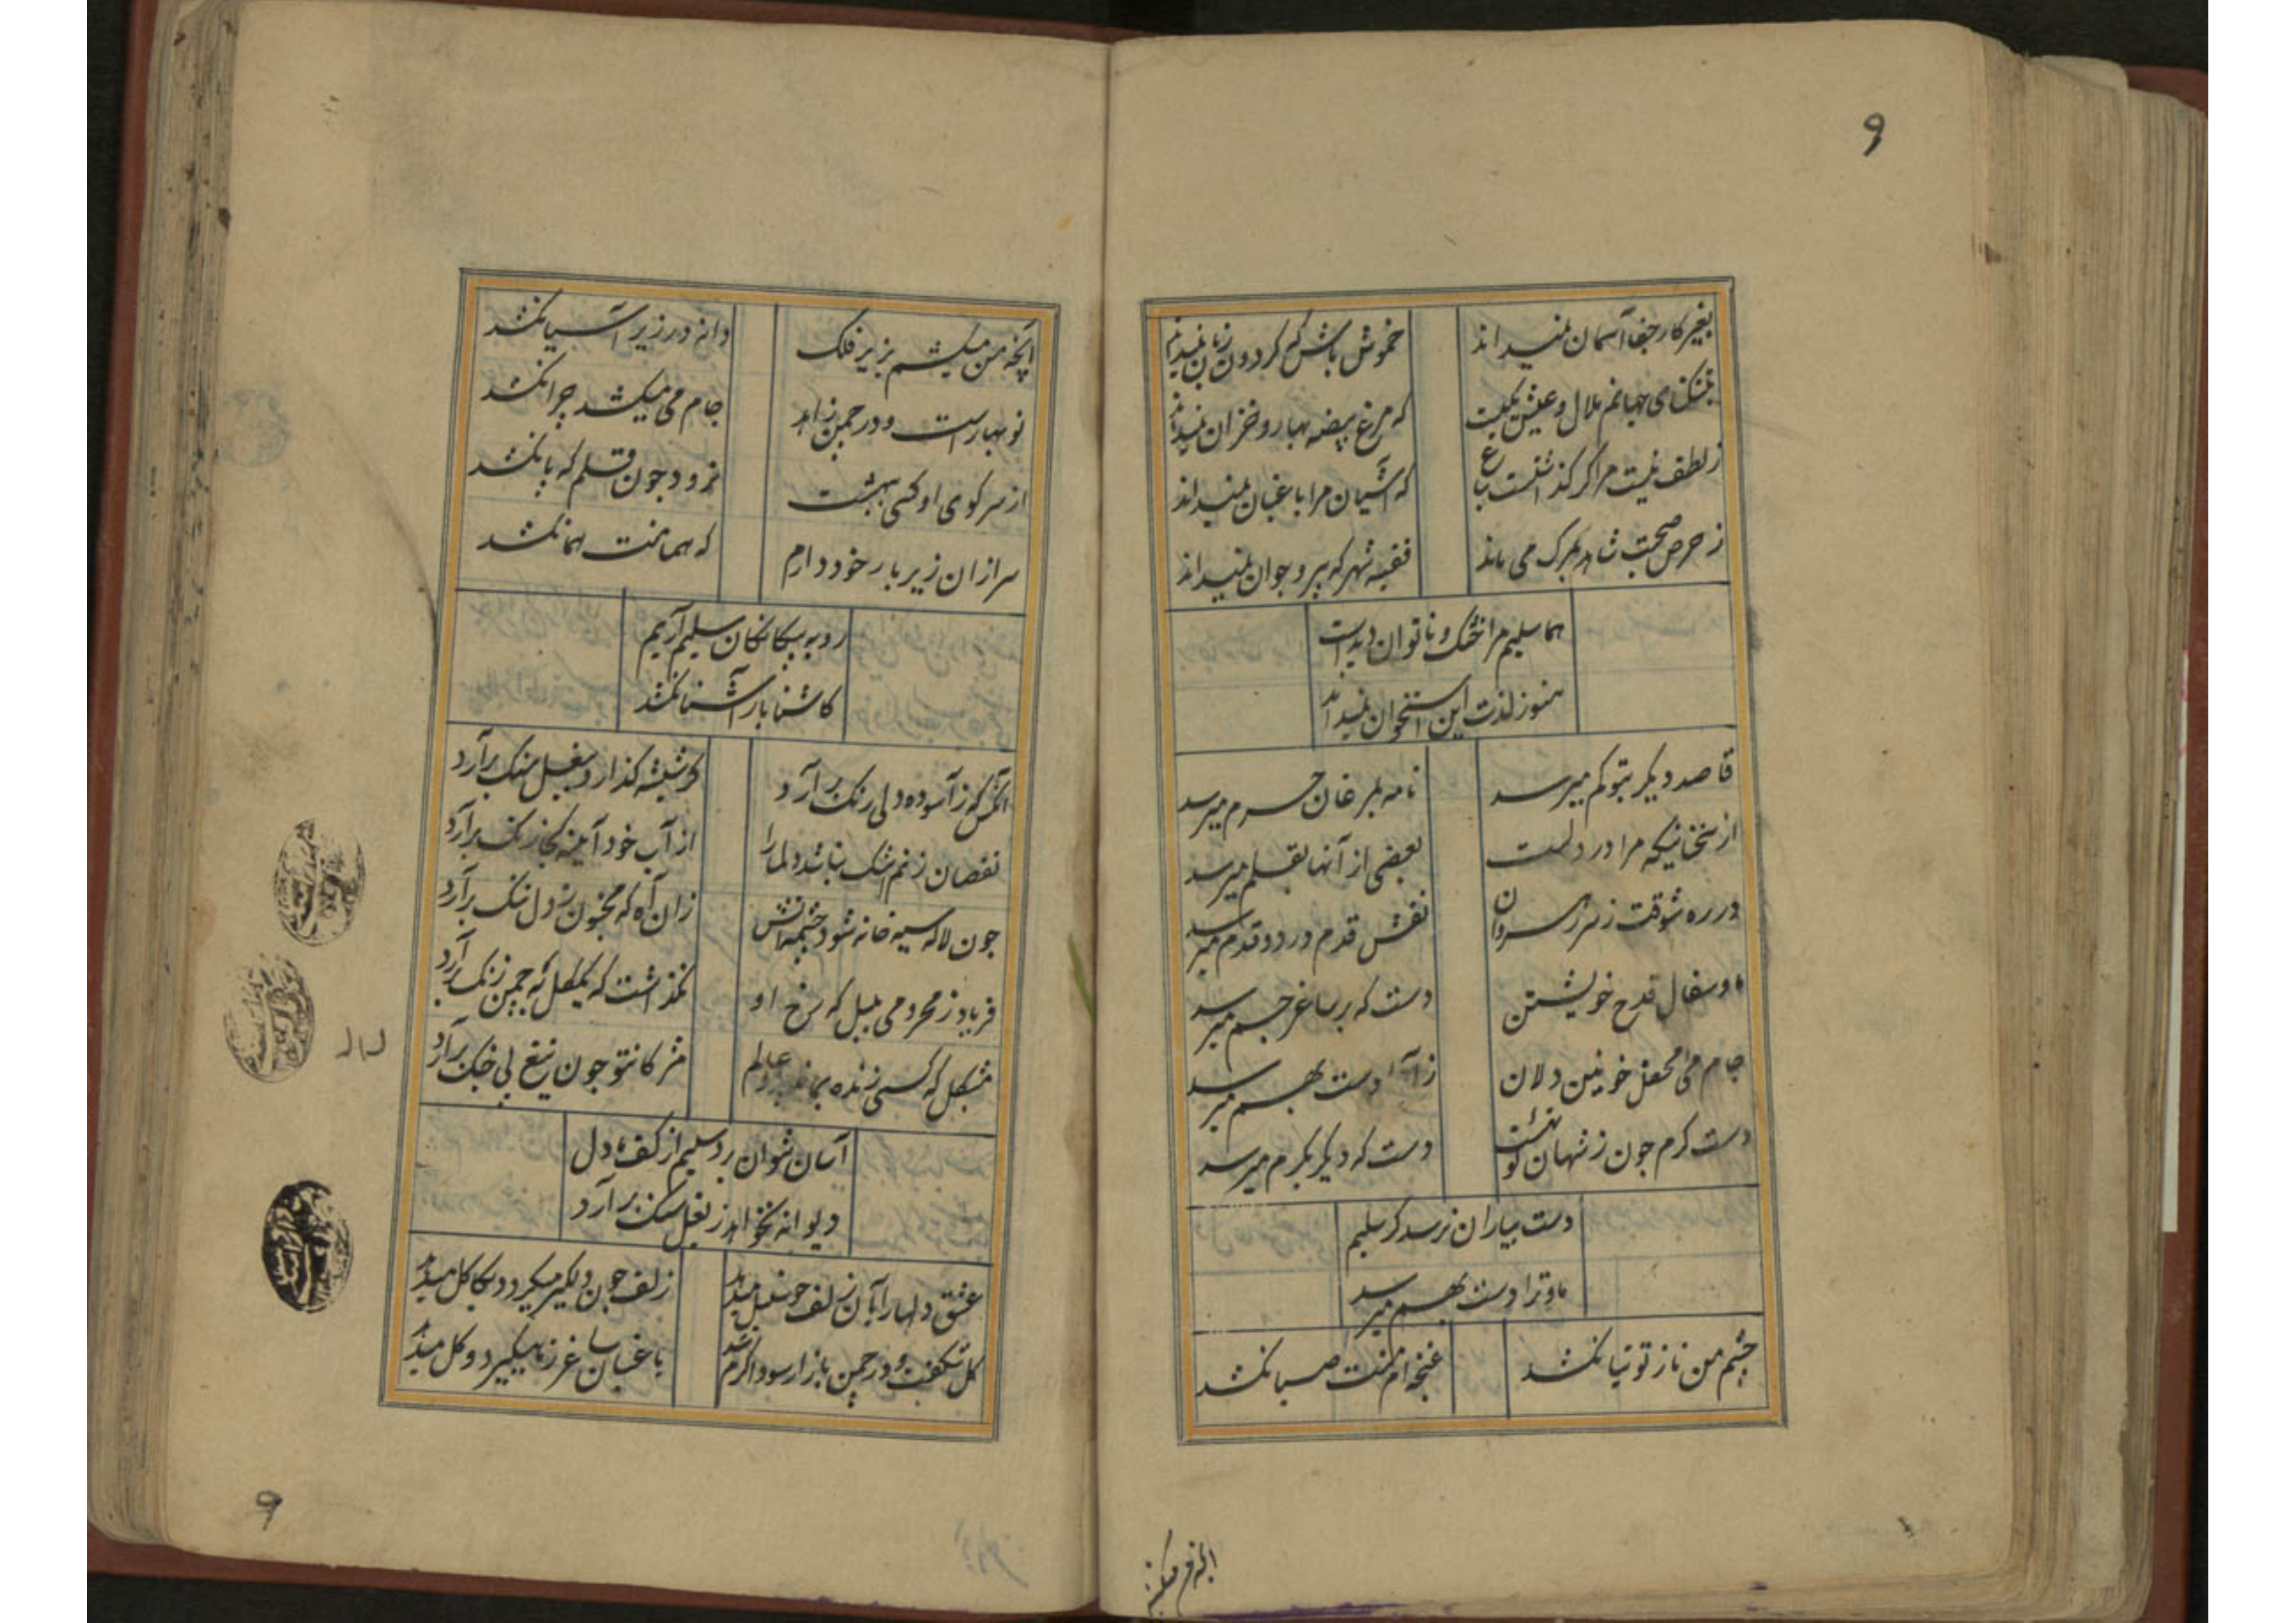 ۹
بغیر کار جفا آسمان نمیداند
خموش باش که کردون زبان نمیداند
بتنکنای جهانم ملال و عیش یکیست
که مرغ بیضه بهار و خزان نمیداند
ز لطف نیست مرا کر کذاشتست بباغ
که آشیان مرا باغبان نمیداند
ز حرص صحبت شاهد بمرک می ماند
فقیه شهر که پیر و جوان نمیداند
هما سلیم مرا خشک و ناتوان دیدست
هنوز لذت این استخوان نمیداند
قاصد دیکر بتو کم میرسد
نامه بمرغان حرم میرسد
از سخنانیکه مرا در دلست
بعضی از آنها بقلم میرسد
در ره شوقت ز سر رهروان
نقش قدم در دو قدم میرسد
ما و سفال قدح خویشتن
دست که بر ساغر جم میرسد
جام می محفل خونین دلان
دست بهم میرسد
دست کرم چون ز شهان کوتهست
دست که دیکر بکرم میرسد
دست بیاران نرسد کر سلیم
ما و ترا دست بهم میرسد
چشم من ناز توتیا نکشد
غنچه ام منت صبا نکشد
آنچه من میکشم بزیر فلک
دانه در زیر آسیا نکشد
نو بهارست و در چمن زاهد
جام می میکشد چرا نکشد
از سر کوی او کسی ببهشت
نرود چون قلم که پا نکشد
سر ازان زیر بار خود دارم
که هما منت هما نکشد
رو به بیکانکان سلیم آریم
کاشنا بار آشنا نکشد
آنکس که ز آسوده دلی رنک برآرد
کر شیشه کذارد ببغل سنک برآرد
نقصان ز نم اشک نباشد دلما را
از آب خود آیینه کجا زنک برآرد
چون لاله سیه خانه شود چشمه آتش
زان آه که مجنون ز دل تنک برآرد
فریاد ز محرومی بلبل که رخ او
نکذاشت که یک کل به چمن رنک برآرد
مشکل که کسی زنده بماند عالم
مژکان تو چون تیغ پی جنک برآرد
آسان نتوان برد سلیم از کف ما دل
دیوانه نخواهد ز بغل سنک برآرد
عشق دلها را بآن زلف چو سنبل میدهد
زلف چون دلکیر میکردد بکاکل میدهد
کل شکفت و در چمن بازار سودا کرم شد
باغبان ساغر ز ما میکیرد و کل میدهد
۹